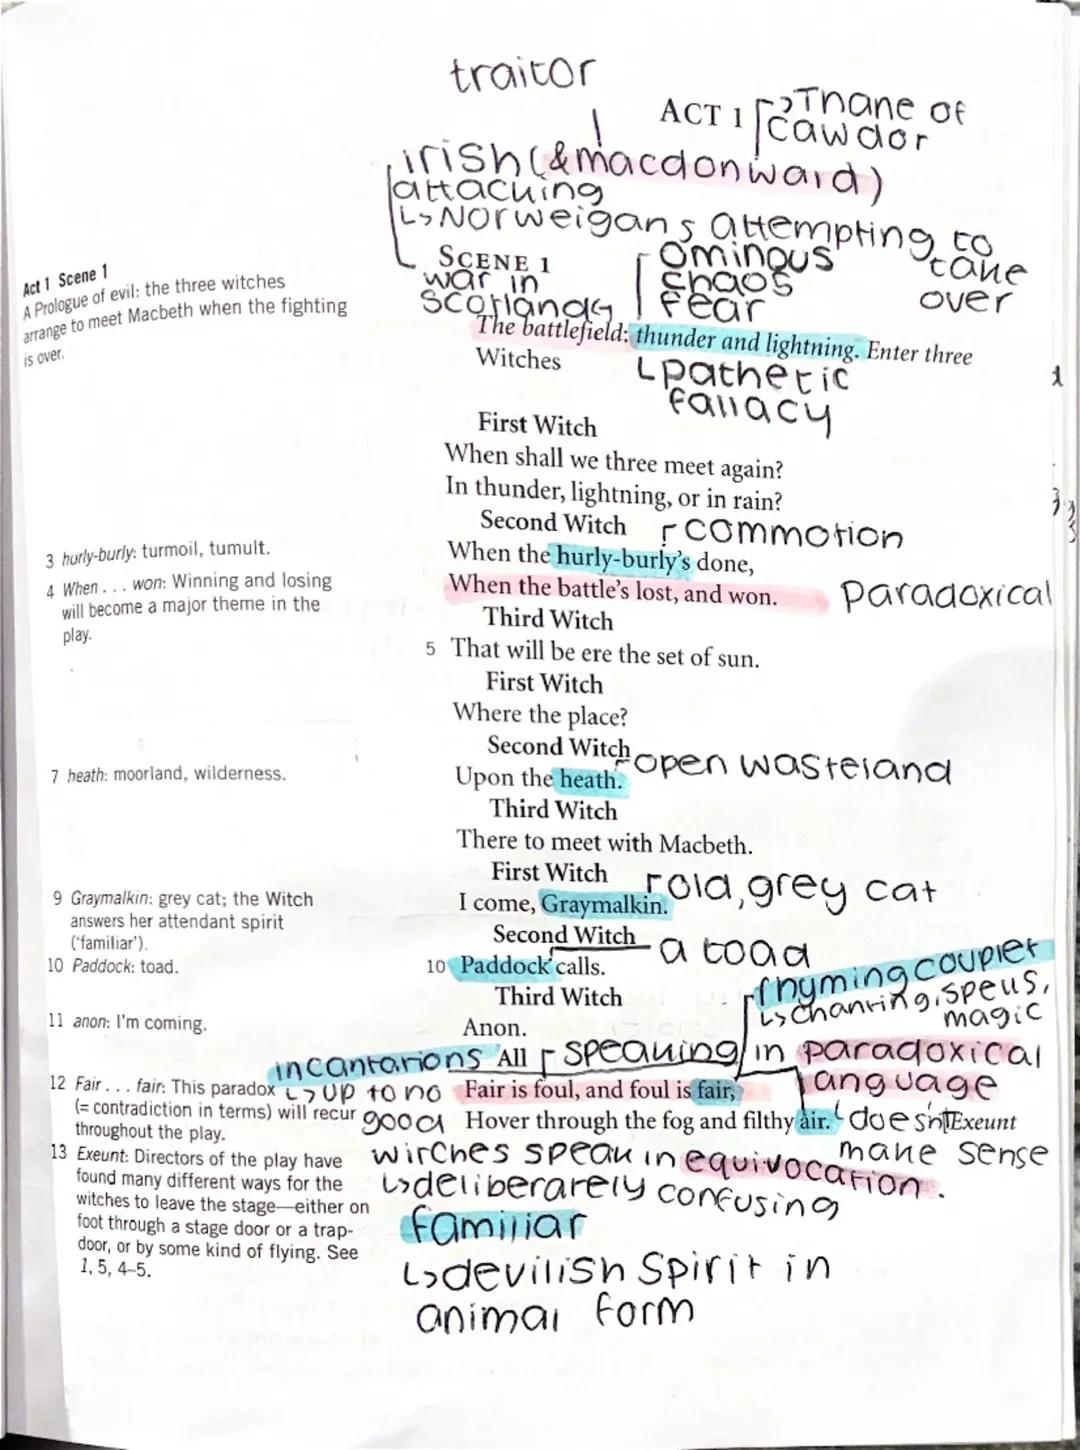 traitor
ACT 1 ↳Thane of
cawdor
irish (& macdonward)
attacking
↳Norweigans attempting to
take
over
SCENE 1
war in
scotland
ominous
chaos
fear
Act 1 Scene 1
A Prologue of evil: the three witches
arrange to meet Macbeth when the fighting
is over.
The battlefield: thunder and lightning. Enter three
Witches
pathetic
fallacy
First Witch
When shall we three meet again?
In thunder, lightning, or in rain?
Second Witch
commotion
3 hurly-burly: turmoil, tumult.
When the hurly-burly's done,
4 When . . . won: Winning and losing
will become a major theme in the
play.
When the battle's lost, and won.
paradoxical
Third Witch
5 That will be ere the set of sun.
First Witch
Where the place?
Second Witch
open wasteland
7 heath: moorland, wilderness.
Upon the heath.
Third Witch
There to meet with Macbeth.
First Witch
old, grey cat
9 Graymalkin: grey cat; the Witch
answers her attendant spirit
('familiar').
I come, Graymalkin.
Second Witch
a toad
10 Paddock: toad.
10 Paddock calls.
Third Witch
rhyming couplet
↳chanting, spells,
magic
11 anon: I'm coming.
Anon.
incantations
All
speaking in paradoxical
language
↳doesn't
make sense
12 Fair . . . fair: This paradox
(= contradiction in terms) will recur
throughout the play.
↳up to no
good
Fair is foul, and foul is fair,
Hover through the fog and filthy air.
Exeunt
13 Exeunt: Directors of the play have
found many different ways for the
witches to leave the stage—either on
foot through a stage door or a trap-
door, or by some kind of flying. See
1, 5, 4–5.
witches speak in equivocation.
↳deliberately confusing
familiar
↳devilish Spirit in
animal form